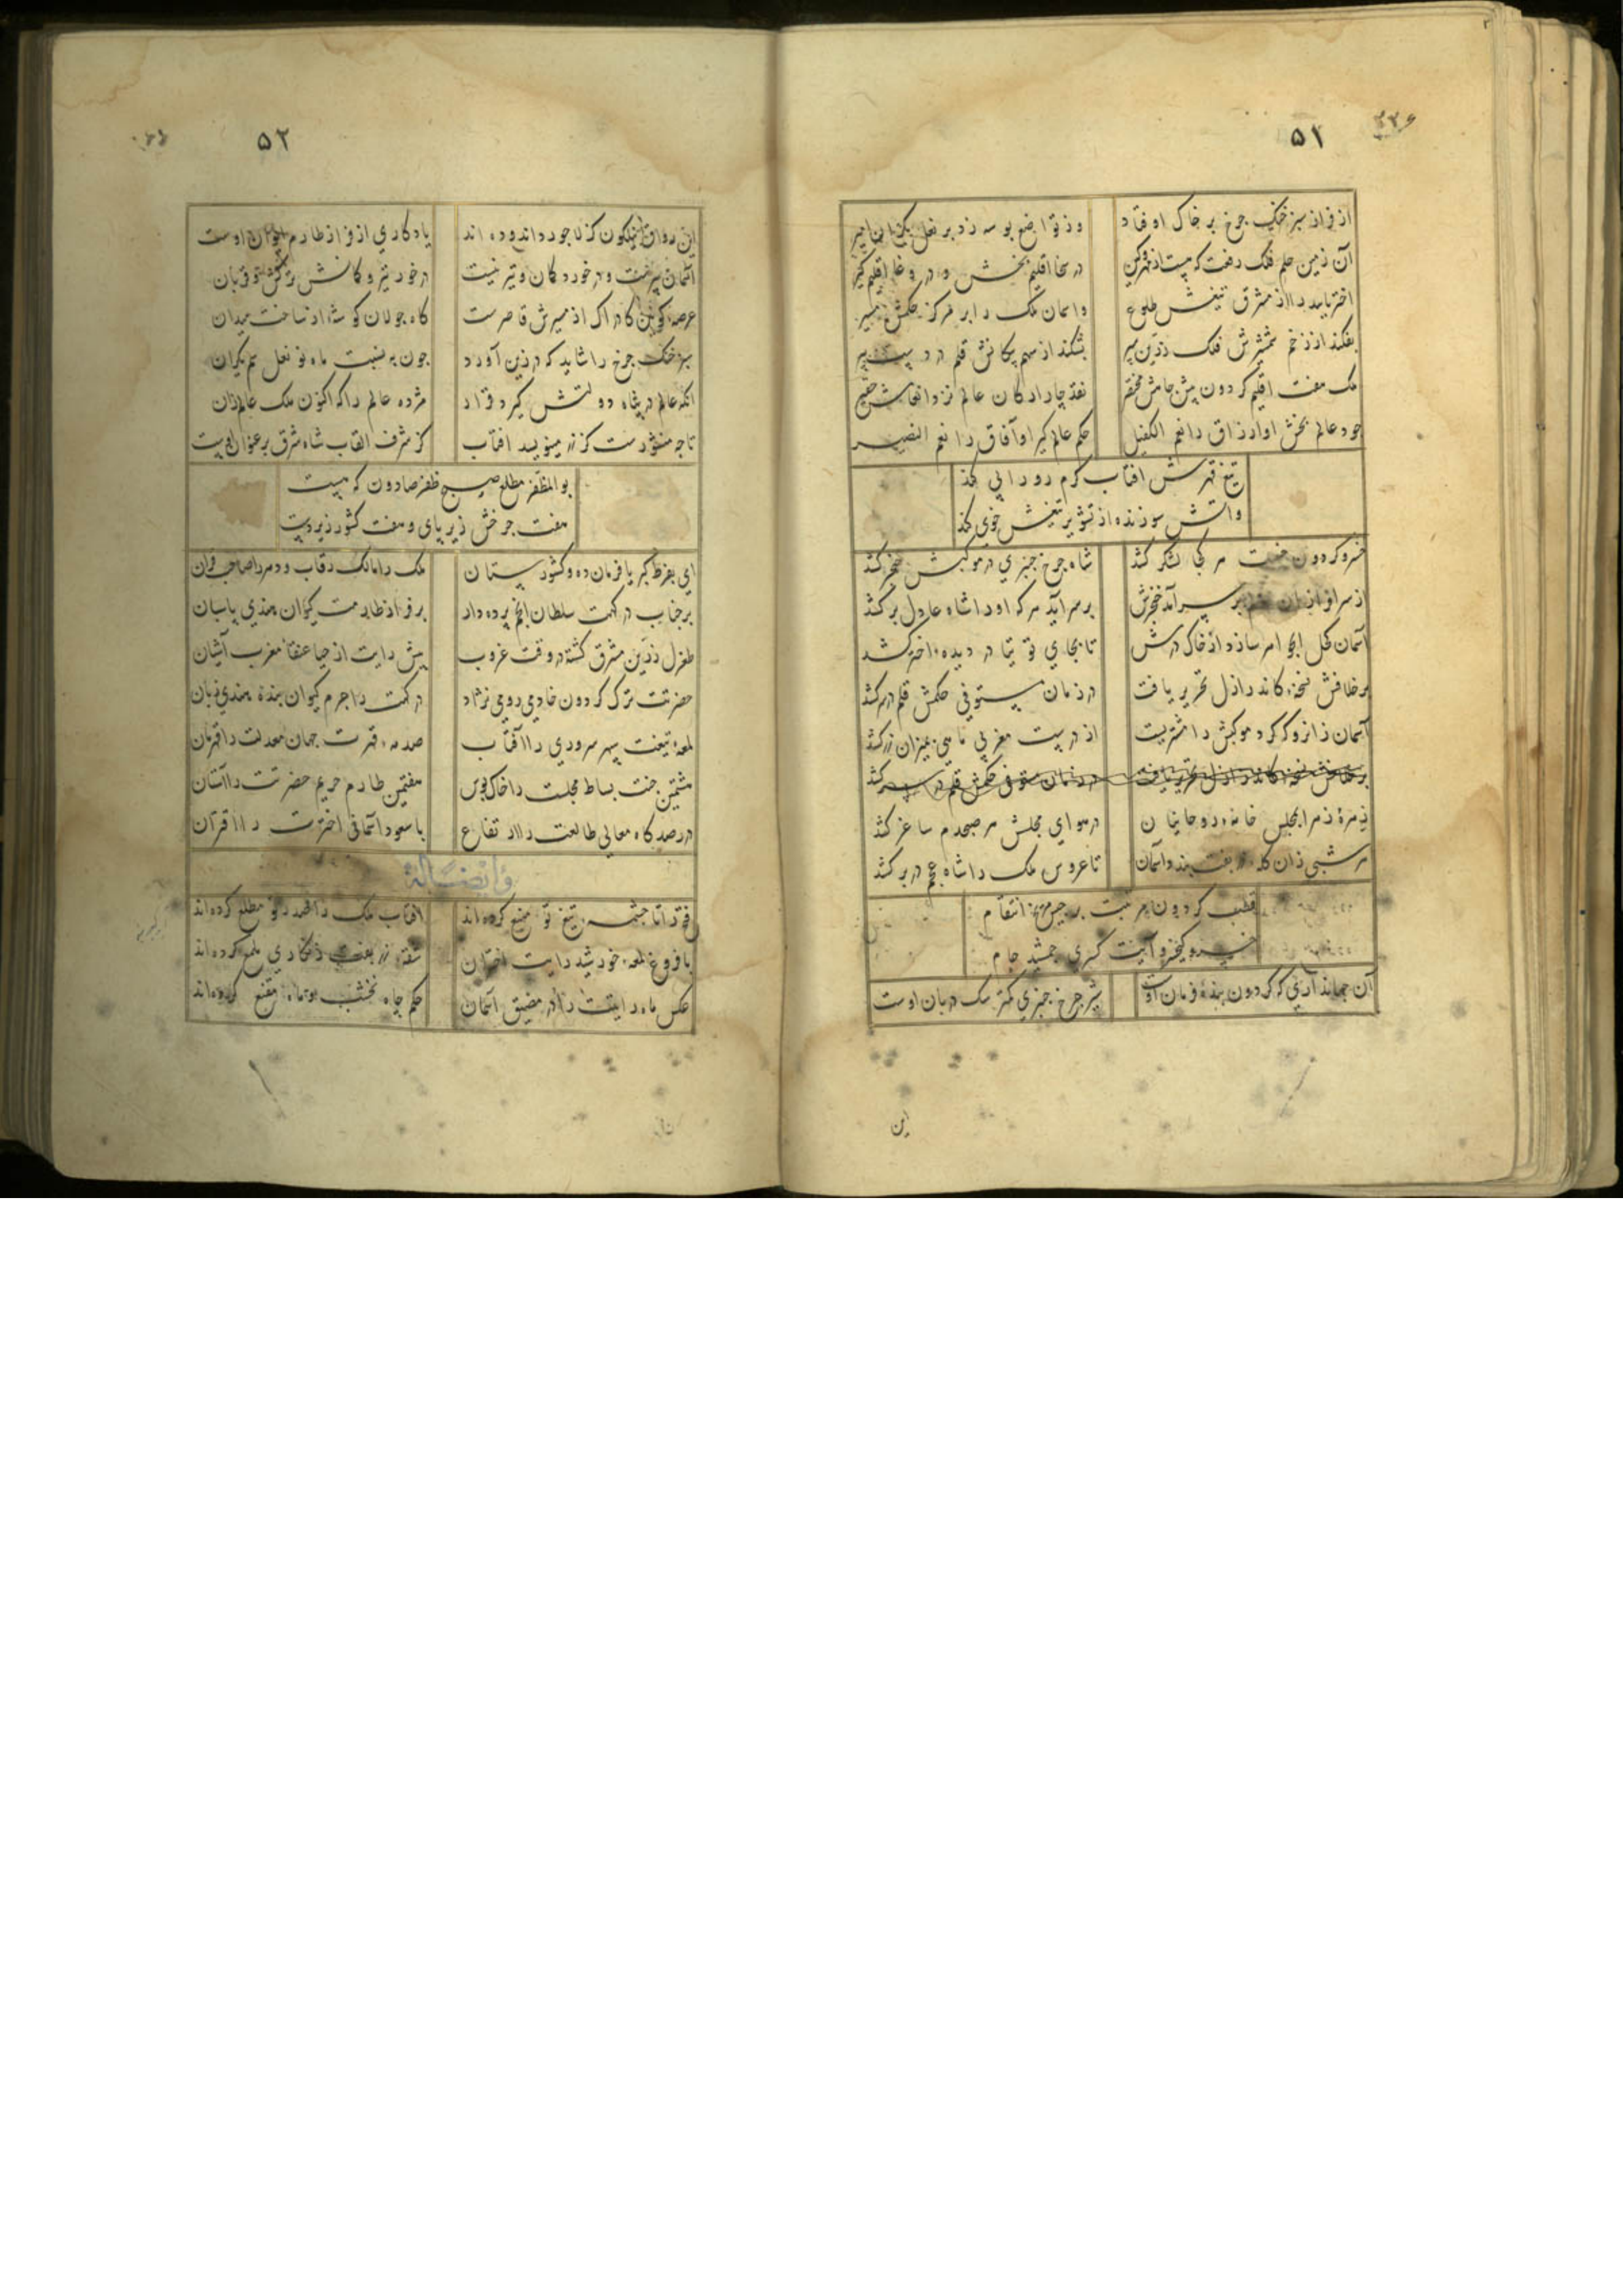 ۵۱
از فراز سبز خنک جرخ بر خاک اوفتاد وز تواضع بوسه زد بر نعل
آن زمین حلم فلک رفعت که در سخا اقلیم بخش و در وغا اقلیم گیر
اختر تابید را از مشرق تیغش طلوع واسمان ملک را بر مرکز حکمش مسیر
بفکند از زخم شمشیرش فلک زرین سپر بشکند از سهم پیکانش قلم در دست تیر
ملک هفت اقلیم کردون پیش جاهش مختصر نقد چار ارکان عالم نزد انعامش حقیر
جود عالم بخش او ارزاق را نعم الکفیل حکم عالم کیر او آفاق را نعم النصیر
تیغ قهرش افتاب کرم رو را پی کند
واتش سوزنده از تشویر تیغش خوی کند
خسرو کردون هر کجا لشکر کشد شاه جرخ جنبری در موکبش خنجر کشد
بر سر آمد خنجرش بر سر آید هر که او را شاه عادل بر کشد
آسمان کحل از خاک درش تا بجای توتیا در دیده اختر کشد
بر خلافش نسخه کاندر ازل تحریر یافت در زمان مستوفی حکمش قلم در کشد
آسمان زانرو که کرد موکبش را مشتریست از درست مغربی بمیزان زر کشد
بر خلافش نسخه کاندر ازل تحریر یافت در زمان مستوفی حکمش قلم در سر کشد
زمره زهرا بمجلس خانه روحانیان در هوای مجلش هر صبحدم ساغر کشد
هر شبی زان کله زربفت بندد اسمان تا عروس ملک را شاه عجم در بر کشد
قطب کردون مرتبت برجیس انتقام
خسرو کیخسرو آیت کسری جمشید جام
آن جهانداری که کردون بنده فرمان اوست شیر جرخ جنبری کمتر سک دربان اوست
این
۵۲
این رواق نیلکون کز لاجورد اندوده اند یادکاری از فراز طارم ایوان اوست
اسمان تیر نیست در خورد کمان و تیر نیست در خور تیر و کمانش ترکش و قربان
عرصه کونین کادراک از مسیرش قاصرست کاه جولان کوشه از ساحت میدان
سبز خنک جرخ را شاید که در زین آورد جون به نسبت ماه نو نعل سم یکران
آنکه عالم در پناه دولتش کیرد قرار مژده عالم را که اکنون ملک عالم زان
تا جه منشورست کز زر مینویسد افتاب کز شرف القاب شاه شرق بر عنوان
بوالمظفر مطلع صبح ظفر هارون که هست
هفت جرخش زیر پای و هفت کشور زیر دست
ای بفرط کبریا فرمان ده کشورستان ملک را مالک رقاب و دهر را صاحب قران
بر جناب درکهت سلطان انجم پرده دار بر فراز طارمت کیوان هندی پاسبان
طغرل زرین مشرق کشته در وقت غروب پیش رایت از حیا عنقاء مغرب آشیان
حضرتت ترک کردون خادمی رومی نژاد درکهت را جرم کیوان بنده هندی زبان
لمعه تیغت سپهر سروری را آفتاب صدمه قهرت جهان معدلت را قهرمان
هشتمین جنت بساط مجلست را خاک بوس هفتمین طارم حریم حضرتت را آستان
در رصد کاه معالی طالعت را ارتفاع با سعود اسمانی اخترت را اقتران
وایضا له
فتح را تا جشمه تیغ تو منبع کرده اند افتاب ملک را مطلع کرده اند
با فروغ لمعه خورشید رایت اختران شقه زربفت زنکاری ملمع کرده اند
عکس ماه رایتت را در مضیق آسمان حکم جاه نخشب و ماه مقنع کرده اند